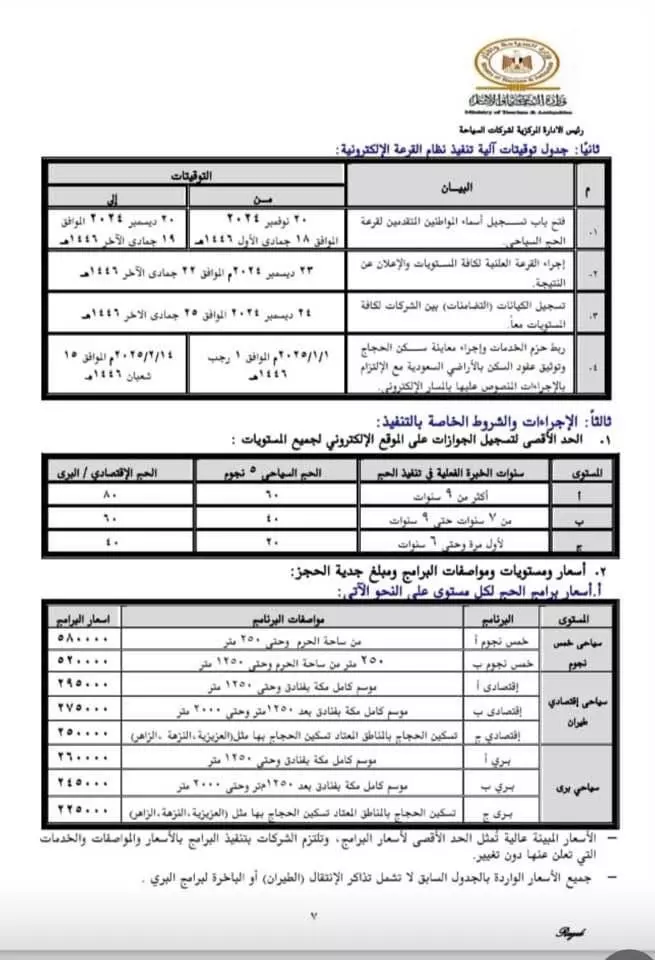 وزارة السياحة والآثار
Ministry of Tourism & Antiquities
رئيس الادارة المركزية لشركات السياحة
ثانيًا: جدول توقيتات آلية تنفيذ نظام القرعة الإلكترونية:
م البيـــان التوقيتات
مـــن إلى
٠١ فتح باب تسجيل أسماء المواطنين المتقدمين لقرعة الحج السياحي. ٢٠ نوفمبر ٢٠٢٤ الموافق ١٨ جمادى الأول ١٤٤٦هـ ٢٠ ديسمبر ٢٠٢٤ الموافق ١٩ جمادى الآخر ١٤٤٦هـ
٠٢ إجراء القرعة العلنية لكافة المستويات والإعلان عن النتيجة. ٢٣ ديسمبر ٢٠٢٤م الموافق ٢٢ جمادى الآخر ١٤٤٦هـ
٠٣ تسجيل الكيانات (التضامنات) بين الشركات لكافة المستويات معاً. ٢٤ ديسمبر ٢٠٢٤ الموافق ٢٥ جمادى الاخر ١٤٤٦هـ
٠٤ ربط حزم الخدمات وإجراء معاينة سكن الحجاج وتوثيق عقود السكن بالأراضي السعودية مع الإلتزام بالإجراءات المنصوص عليها بالمسار الإلكتروني. ٢٠٢٥/١/١م الموافق ١ رجب ١٤٤٦هـ ٢٠٢٥/٢/١٤م الموافق ١٥ شعبان ١٤٤٦هـ
ثالثاً: الإجراءات والشروط الخاصة بالتنفيذ:
٠١ الحد الأقصى لتسجيل الجوازات على الموقع الإلكتروني لجميع المستويات :
المستوى سنوات الخبرة الفعلية في تنفيذ الحج الحج السياحي ٥ نجوم الحج الإقتصادي / البرى
أ أكثر من ٩ سنوات ٦٠ ٨٠
ب من ٧ سنوات حتى ٩ سنوات ٤٠ ٦٠
ج لأول مرة وحتى ٦ سنوات ٢٠ ٤٠
٠٢ أسعار ومستويات ومواصفات البرامج ومبلغ جدية الحجز:
أ.أسعار برامج الحج لكل مستوى على النحو الآتي:
المستوى البرنامج مواصفات البرنامج اسعار البرامج
سياحى خمس نجوم خمس نجوم أ من ساحة الحرم وحتى ٢٥٠ متر ٥٨٠٠٠٠
خمس نجوم ب ٢٥٠ متر من ساحة الحرم وحتى ١٢٥٠ متر ٥٢٠٠٠٠
سياحى إقتصادي طيران إقتصادى أ موسم كامل مكة بفنادق وحتى ١٢٥٠ متر ٢٩٥٠٠٠
إقتصادى ب موسم كامل مكة بفنادق بعد ١٢٥٠متر وحتى ٢٠٠٠ متر ٢٧٥٠٠٠
إقتصادي ج تسكين الحجاج بالمناطق المعتاد تسكين الحجاج بها مثل(العزيزية،النزهة ،الزاهر) ٢٥٠٠٠٠
سياحي برى بري أ موسم كامل مكة بفنادق وحتى ١٢٥٠ متر ٢٦٠٠٠٠
بري ب موسم كامل مكة بفنادق بعد ١٢٥٠متر وحتى ٢٠٠٠ متر ٢٤٥٠٠٠
برى ج تسكين الحجاج بالمناطق المعتاد تسكين الحجاج بها مثل (العزيزية،النزهة،الزاهر) ٢٢٥٠٠٠
– الأسعار المبينة عالية تُمثل الحد الأقصى لأسعار البرامج، وتلتزم الشركات بتنفيذ البرامج بالأسعار والمواصفات والخدمات
التي تعلن عنها دون تغيير.
– جميع الأسعار الواردة بالجدول السابق لا تشمل تذاكر الإنتقال (الطيران) أو الباخرة لبرامج البري .
٧